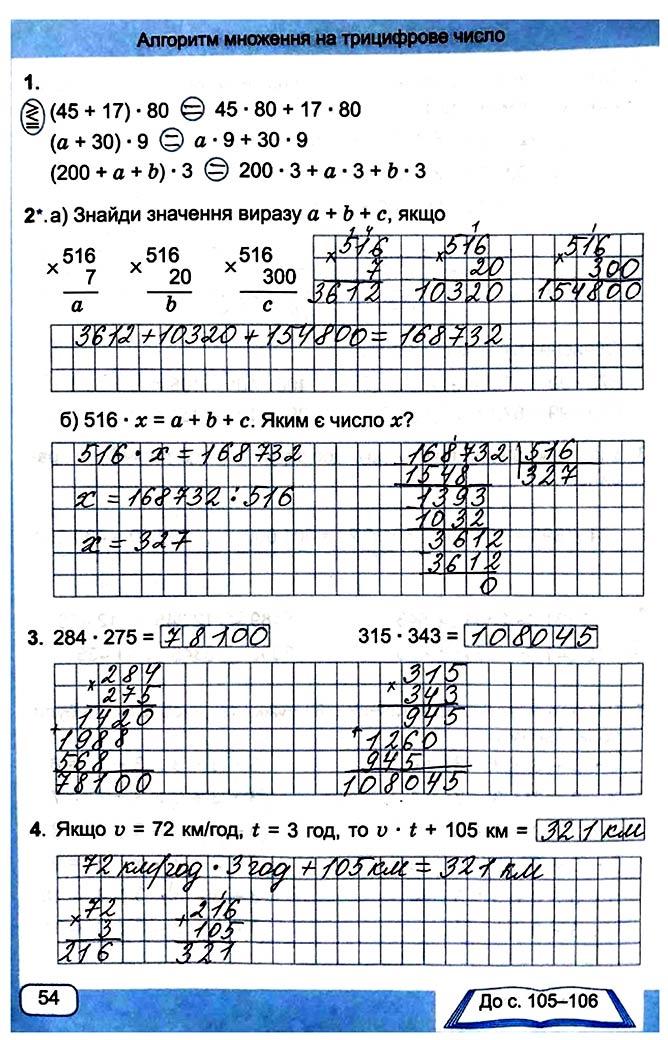 Алгоритм множення на трицифрове число
1.
(45 + 17) · 80 = 45 · 80 + 17 · 80
(a + 30) · 9 = a · 9 + 30 · 9
(200 + a + b) · 3 = 200 · 3 + a · 3 + b · 3
2*.а) Знайди значення виразу a + b + c, якщо
× 516 × 516 × 516
7 20 300
a b c
1 4 1 1
× 516 × 516 × 516
7 20 300
3612 10320 154800
3612 + 10320 + 154800 = 168732
б) 516 · x = a + b + c. Яким є число x?
516 · x = 168732
x = 168732 : 516
x = 327
168732 516
1548 327
1393
1032
3612
3612
0
3. 284 · 275 = 78100 315 · 343 = 108045
× 284
275
1420
+ 1988
568
78100
× 315
343
945
+ 1260
945
108045
4. Якщо v = 72 км/год, t = 3 год, то v · t + 105 км = 321 км
72 км/год · 3 год + 105 км = 321 км
× 72
3
216
1
+ 216
105
321
54
До с. 105–106